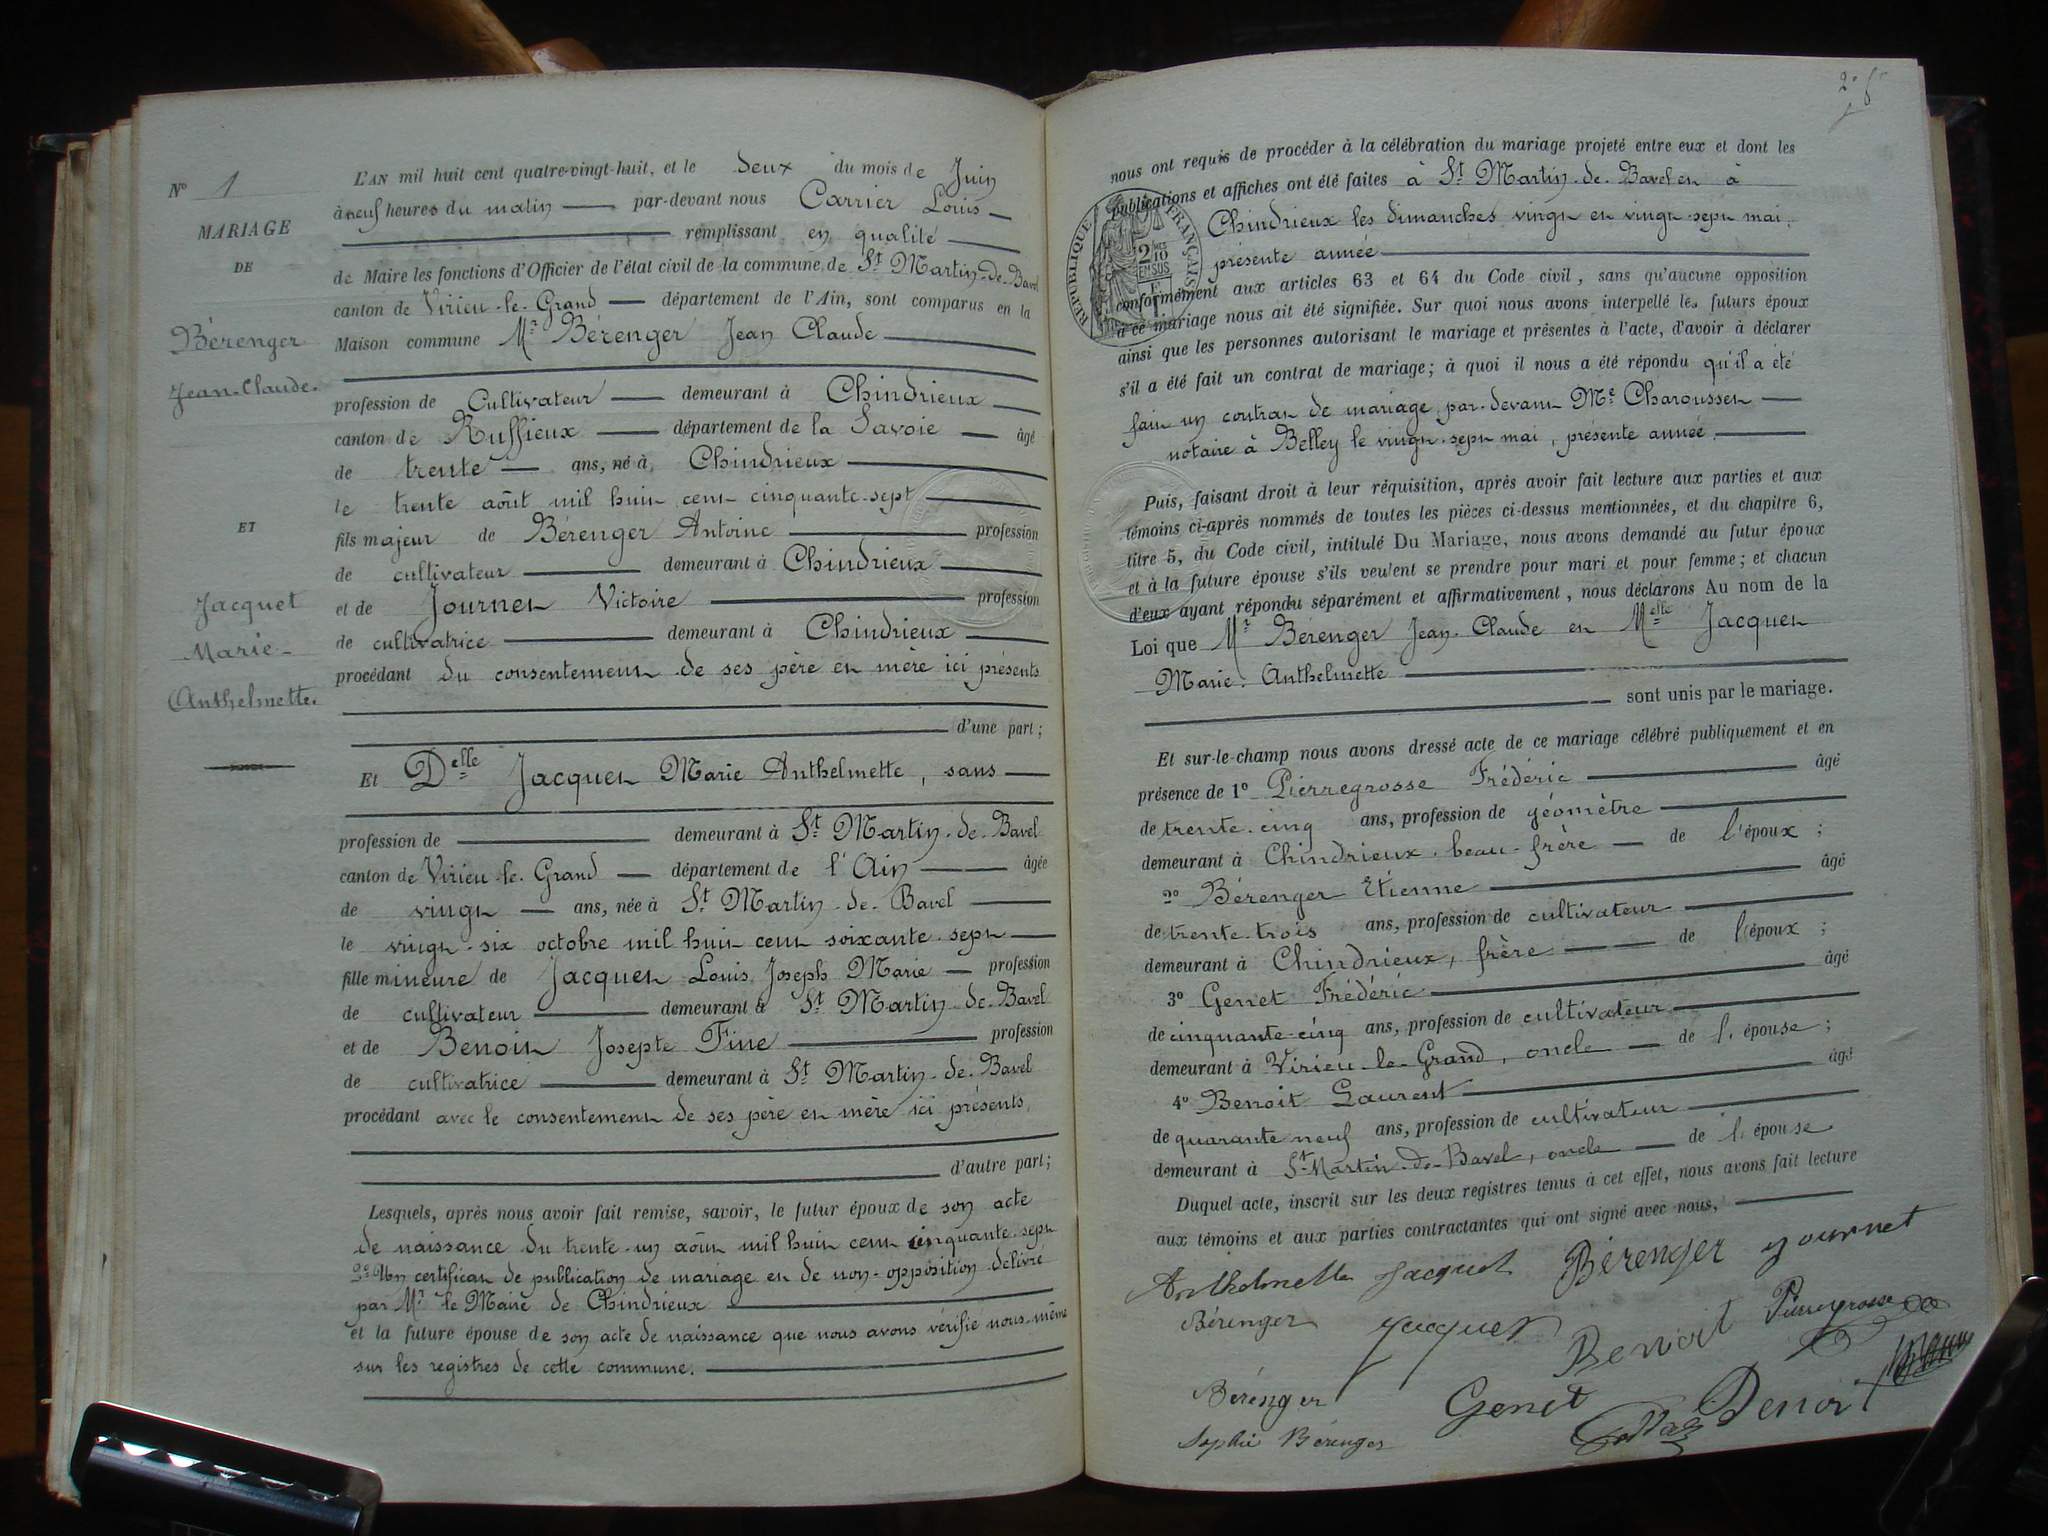 N° 1
MARIAGE
DE
Bérenger
Jean-Claude.
ET
Jacquet
Marie-
Anthelmette.
L'AN mil huit cent quatre-vingt-huit, et le deux du mois de Juin
à neuf heures du matin par-devant nous Carrier Louis
remplissant en qualité
de Maire les fonctions d'Officier de l'état civil de la commune de St Martin-de-Bavel
canton de Virieu-le-Grand département de l'Ain, sont comparus en la
Maison commune Mr Bérenger Jean Claude
profession de Cultivateur demeurant à Chindrieux
canton de Ruffieux département de la Savoie âgé
de trente ans, né à Chindrieux
le trente août mil huit cent cinquante-sept
fils majeur de Bérenger Antoine profession
de cultivateur demeurant à Chindrieux
et de Journet Victoire profession
de cultivatrice demeurant à Chindrieux
procédant du consentement de ses père et mère ici présents
d'une part;
Et Delle Jacquet Marie Anthelmette, sans
profession de demeurant à St Martin-de-Bavel
canton de Virieu-le-Grand département de l'Ain âgée
de vingt ans, née à St Martin-de-Bavel
le vingt-six octobre mil huit cent soixante-sept
fille mineure de Jacquet Louis Joseph Marie profession
de cultivateur demeurant à St Martin-de-Bavel
et de Benoit Josepte Fine profession
de cultivatrice demeurant à St Martin-de-Bavel
procédant avec le consentement de ses père et mère ici présents,
d'autre part;
Lesquels, après nous avoir fait remise, savoir, le futur époux de son acte
de naissance du trente-un août mil huit cent cinquante-sept
2° Un certificat de publication de mariage et de non-opposition délivré
par Mr le Maire de Chindrieux
et la future épouse de son acte de naissance que nous avons vérifié nous-même
sur les registres de cette commune.
nous ont requis de procéder à la célébration du mariage projeté entre eux et dont les
publications et affiches ont été faites à St Martin-de-Bavel et à
Chindrieux les dimanches vingt et vingt-sept mai,
présente année
conformément aux articles 63 et 64 du Code civil, sans qu'aucune opposition
à ce mariage nous ait été signifiée. Sur quoi nous avons interpellé les futurs époux
ainsi que les personnes autorisant le mariage et présentes à l'acte, d'avoir à déclarer
s'il a été fait un contrat de mariage; à quoi il nous a été répondu qu'il a été
fait un contrat de mariage par-devant Me Charousset
notaire à Belley le vingt-sept mai, présente année.
RÉPUBLIQUE FRANÇAISE
2/10 EN SUS
Puis, faisant droit à leur réquisition, après avoir fait lecture aux parties et aux
témoins ci-après nommés de toutes les pièces ci-dessus mentionnées, et du chapitre 6,
titre 5, du Code civil, intitulé Du Mariage, nous avons demandé au futur époux
et à la future épouse s'ils veulent se prendre pour mari et pour femme; et chacun
d'eux ayant répondu séparément et affirmativement, nous déclarons Au nom de la
Loi que Mr Bérenger Jean-Claude et Melle Jacquet
Marie-Anthelmette
sont unis par le mariage.
Et sur-le-champ nous avons dressé acte de ce mariage célébré publiquement et en
présence de 1° Pierregrosse Frédéric âgé
de trente-cinq ans, profession de géomètre
demeurant à Chindrieux, beau-frère de l'époux;
2° Bérenger Etienne âgé
de trente-trois ans, profession de cultivateur
demeurant à Chindrieux, frère de l'époux;
3° Genet Frédéric âgé
de cinquante-cinq ans, profession de cultivateur
demeurant à Virieu-le-Grand, oncle de l'épouse;
4° Benoit Laurent âgé
de quarante neuf ans, profession de cultivateur
demeurant à St Martin-de-Bavel, oncle de l'épouse
Duquel acte, inscrit sur les deux registres tenus à cet effet, nous avons fait lecture
aux témoins et aux parties contractantes qui ont signé avec nous,
Anthelmette Jacquet Bérenger Journet
Bérenger Jacquet Benoit Pierregrosse
Bérenger Genet Benoit
Sophie Bérenger